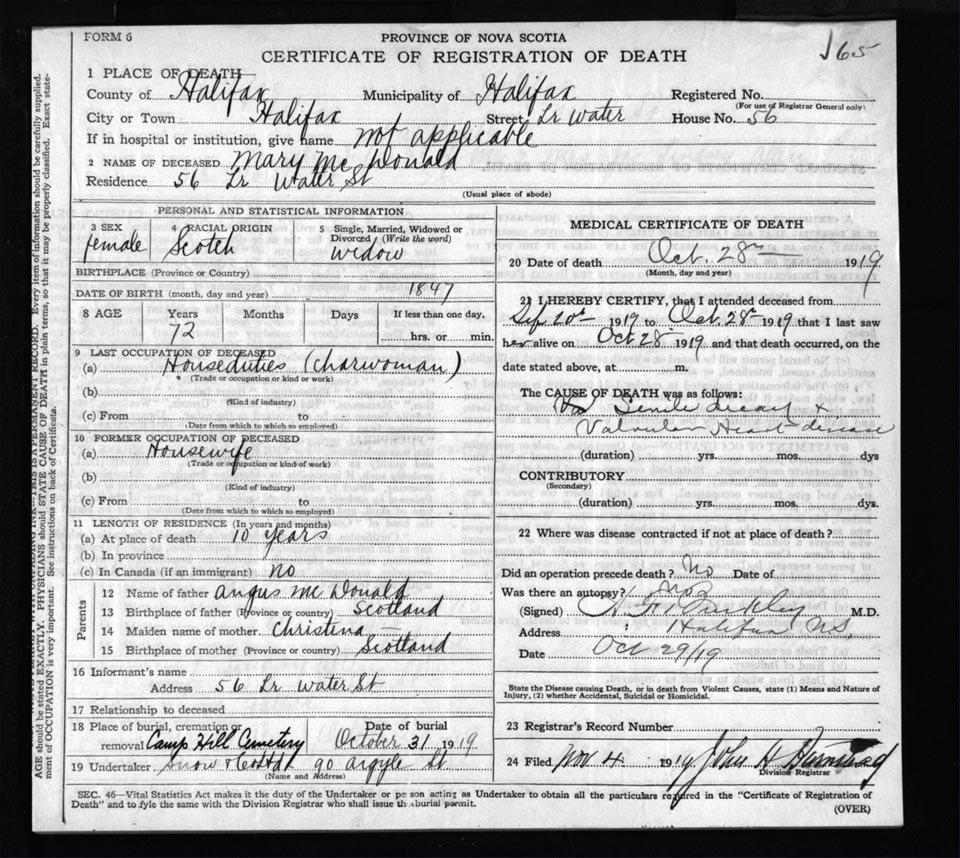 FORM 6
PROVINCE OF NOVA SCOTIA
CERTIFICATE OF REGISTRATION OF DEATH
165
1 PLACE OF DEATH
County of Halifax Municipality of Halifax Registered No.
(For use of Registrar General only)
City or Town Halifax Street Lr Water House No. 56
If in hospital or institution, give name not applicable
2 NAME OF DECEASED Mary Mc Donald
Residence 56 Lr Water St
(Usual place of abode)
PERSONAL AND STATISTICAL INFORMATION
3 SEX female
4 RACIAL ORIGIN Scotch
5 Single, Married, Widowed or Divorced (Write the word) widow
BIRTHPLACE (Province or Country)
DATE OF BIRTH (month, day and year) 1847
8 AGE Years Months Days If less than one day,
72 hrs. or min.
9 LAST OCCUPATION OF DECEASED
(a) Houseduties (charwoman)
(Trade or occupation or kind or work)
(b)
(Kind of industry)
(c) From to
(Date from which to which so employed)
10 FORMER OCCUPATION OF DECEASED
(a) Housewife
(Trade or occupation or kind of work)
(b)
(Kind of industry)
(c) From to
(Date from which to which so employed)
11 LENGTH OF RESIDENCE (In years and months)
(a) At place of death 10 years
(b) In province
(c) In Canada (if an immigrant) no
Parents
12 Name of father angus Mc Donald
13 Birthplace of father (Province or country) Scotland
14 Maiden name of mother Christina —
15 Birthplace of mother (Province or country) Scotland
16 Informant's name
Address 56 Lr Water St
17 Relationship to deceased
18 Place of burial, cremation or removal Camp Hill Cemetery
Date of burial October 31 1919
19 Undertaker Snow & Co Ltd 90 Argyle St
(Name and Address)
MEDICAL CERTIFICATE OF DEATH
20 Date of death Oct. 28th 1919
(Month, day and year)
21 I HEREBY CERTIFY, that I attended deceased from
Sep. 20th 1919 to Oct 28th 1919 that I last saw
her alive on Oct 28 1919 and that death occurred, on the
date stated above, at m.
The CAUSE OF DEATH was as follows:
Senile decay &
Valvular Heart disease
(duration) yrs. mos. dys
CONTRIBUTORY
(Secondary)
(duration) yrs. mos. dys.
22 Where was disease contracted if not at place of death?
Did an operation precede death? No Date of
Was there an autopsy? No
(Signed) M.D.
Address Halifax NS.
Date Oct 29/19
State the Disease causing Death, or in death from Violent Causes, state (1) Means and Nature of
Injury, (2) whether Accidental, Suicidal or Homicidal.
23 Registrar's Record Number
24 Filed Nov 4 1919 John H
Division Registrar
SEC. 46—Vital Statistics Act makes it the duty of the Undertaker or person acting as Undertaker to obtain all the particulars required in the "Certificate of Registration of
Death" and to fyle the same with the Division Registrar who shall issue the burial permit.
(OVER)
THIS IS A PERMANENT RECORD. Every item of information should be carefully supplied.
AGE should be stated EXACTLY. PHYSICIANS should STATE CAUSE OF DEATH in plain terms, so that it may be properly classified. Exact state-
ment of OCCUPATION is very important. See instructions on back of Certificate.